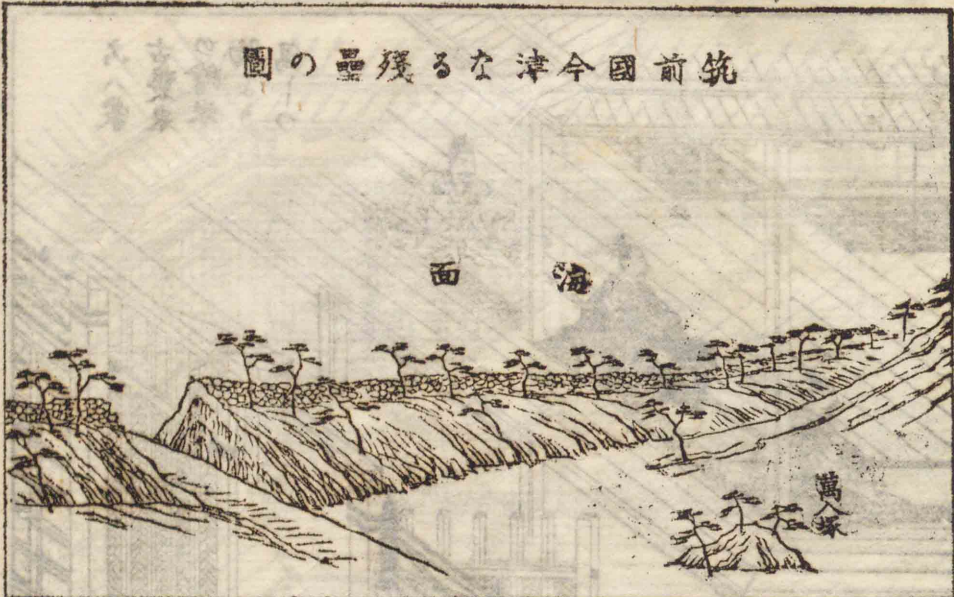 筑前國今津なる殘壘の圖
海面
萬人塚